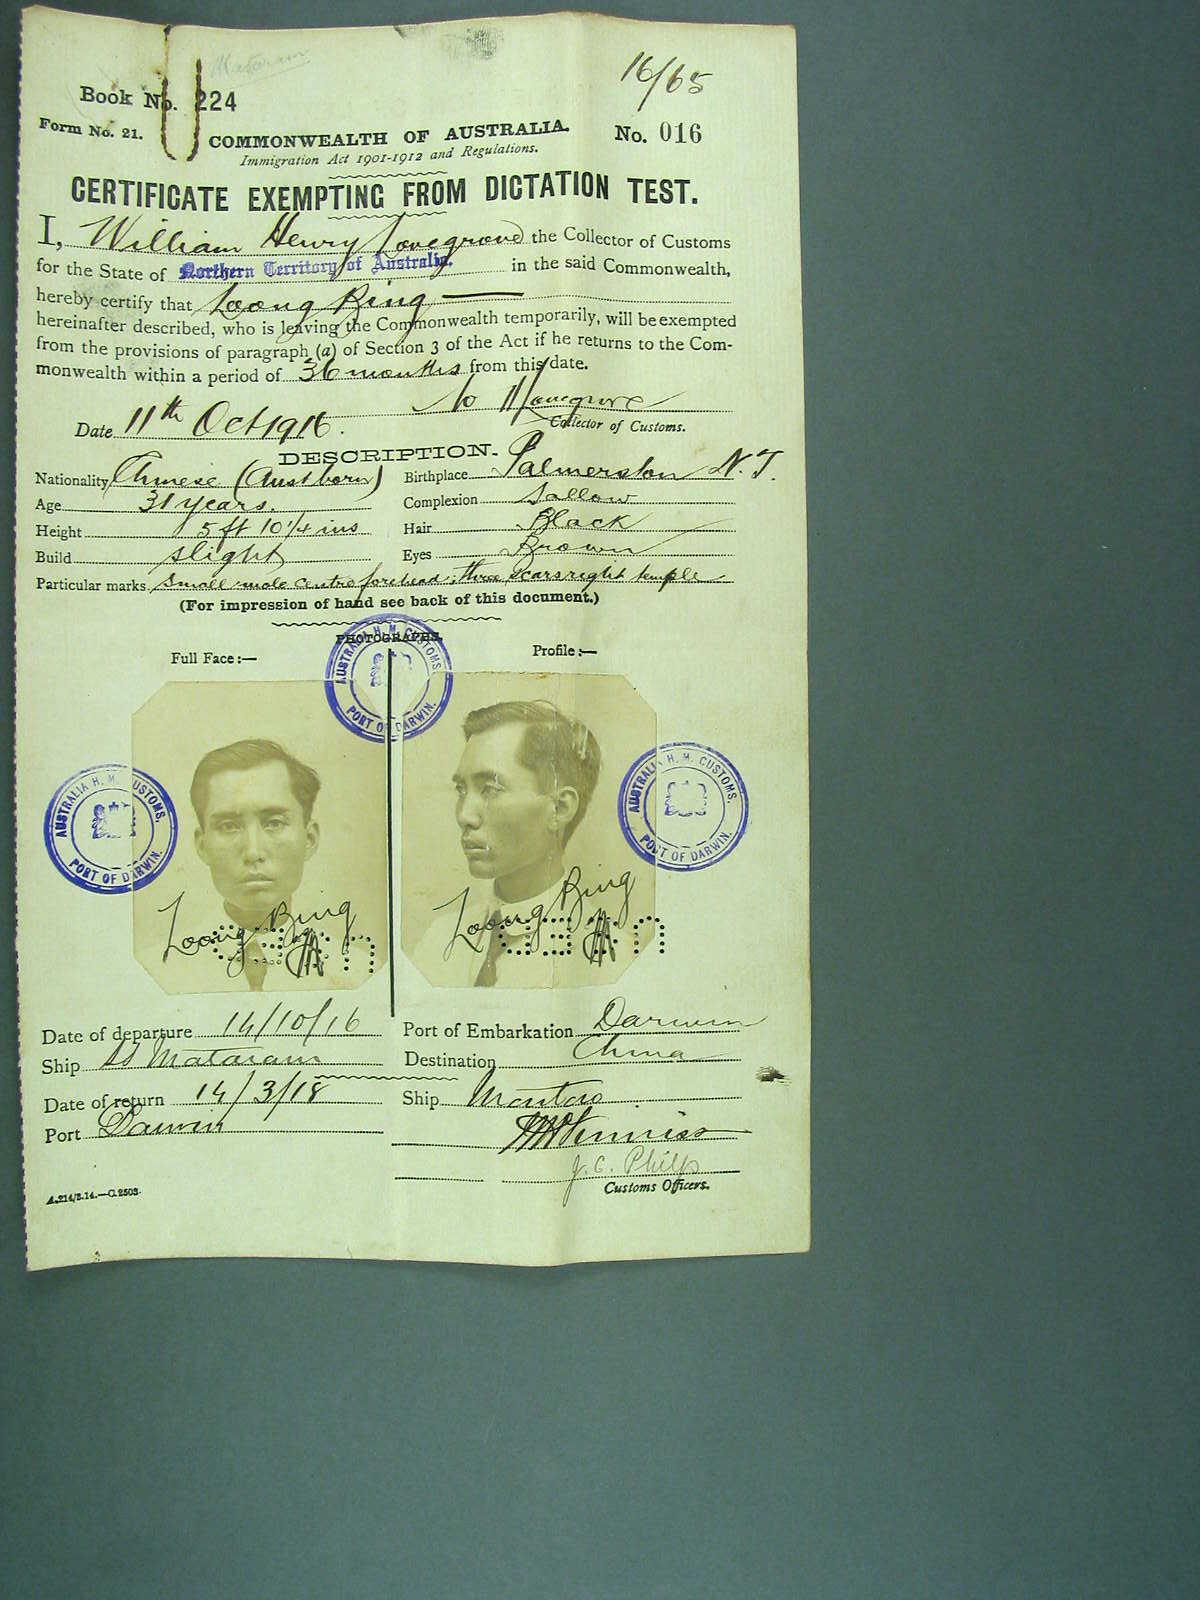 Mataram
16/65
Book No. 224
Form No. 21.
COMMONWEALTH OF AUSTRALIA.
No. 016
Immigration Act 1901-1912 and Regulations.
CERTIFICATE EXEMPTING FROM DICTATION TEST.
I, William Henry Lovegrove the Collector of Customs
for the State of Northern Territory of Australia. in the said Commonwealth,
hereby certify that Loong Bing
hereinafter described, who is leaving the Commonwealth temporarily, will be exempted
from the provisions of paragraph (a) of Section 3 of the Act if he returns to the Com-
monwealth within a period of 36 months from this date.
W H Lovegrove
Date 11th Oct 1916. Collector of Customs.
DESCRIPTION.
Nationality Chinese (Aust born) Birthplace Palmerston N.T.
Age 31 years. Complexion Sallow
Height 5 ft 10 1/4 ins Hair Black
Build slight Eyes Brown
Particular marks small mole centre forehead; three scars right temple
(For impression of hand see back of this document.)
PHOTOGRAPHS.
Full Face:— Profile:—
AUSTRALIA H. M. CUSTOMS. PORT OF DARWIN.
AUSTRALIA H. M. CUSTOMS. PORT OF DARWIN.
AUSTRALIA H. M. CUSTOMS. PORT OF DARWIN.
Loong Bing
Loong Bing
Date of departure 14/10/16 Port of Embarkation Darwin
Ship SS Mataram Destination China
Date of return 14/3/18 Ship Montoro
Port Darwin
J. C. Philp
A.214/3.14.—C.2503.
Customs Officers.